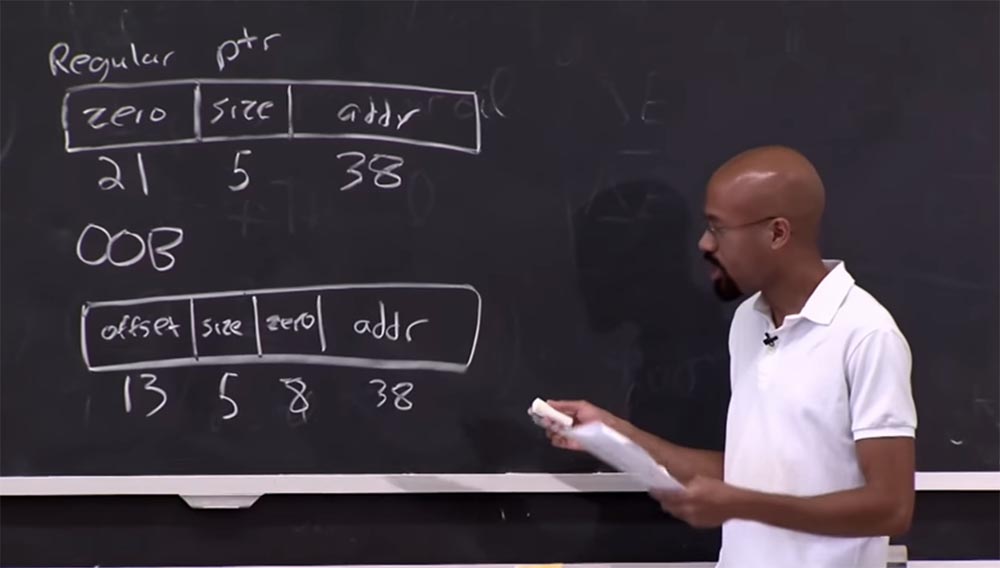 Regular ptr
zero size addr
21 5 38
OOB
offset size zero addr
13 5 8 38